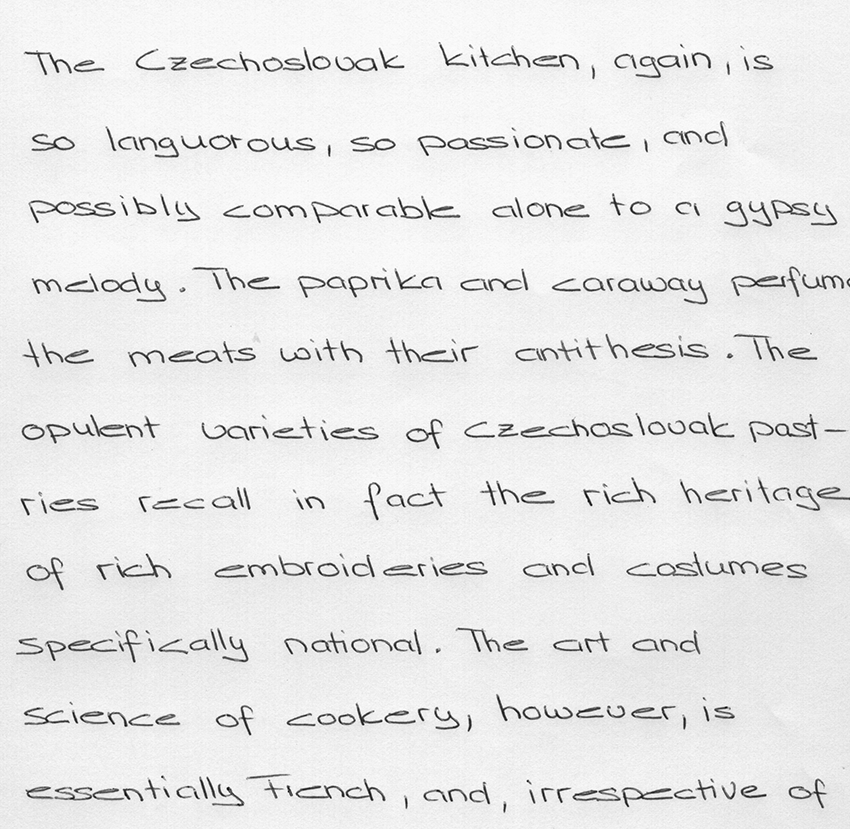 The Czechoslovak kitchen, again, is
so languorous, so passionate, and
possibly comparable alone to a gypsy
melody. The paprika and caraway perfume
the meats with their antithesis. The
opulent varieties of Czechoslovak past-
ries recall in fact the rich heritage
of rich embroideries and costumes
specifically national. The art and
science of cookery, however, is
essentially French, and, irrespective of